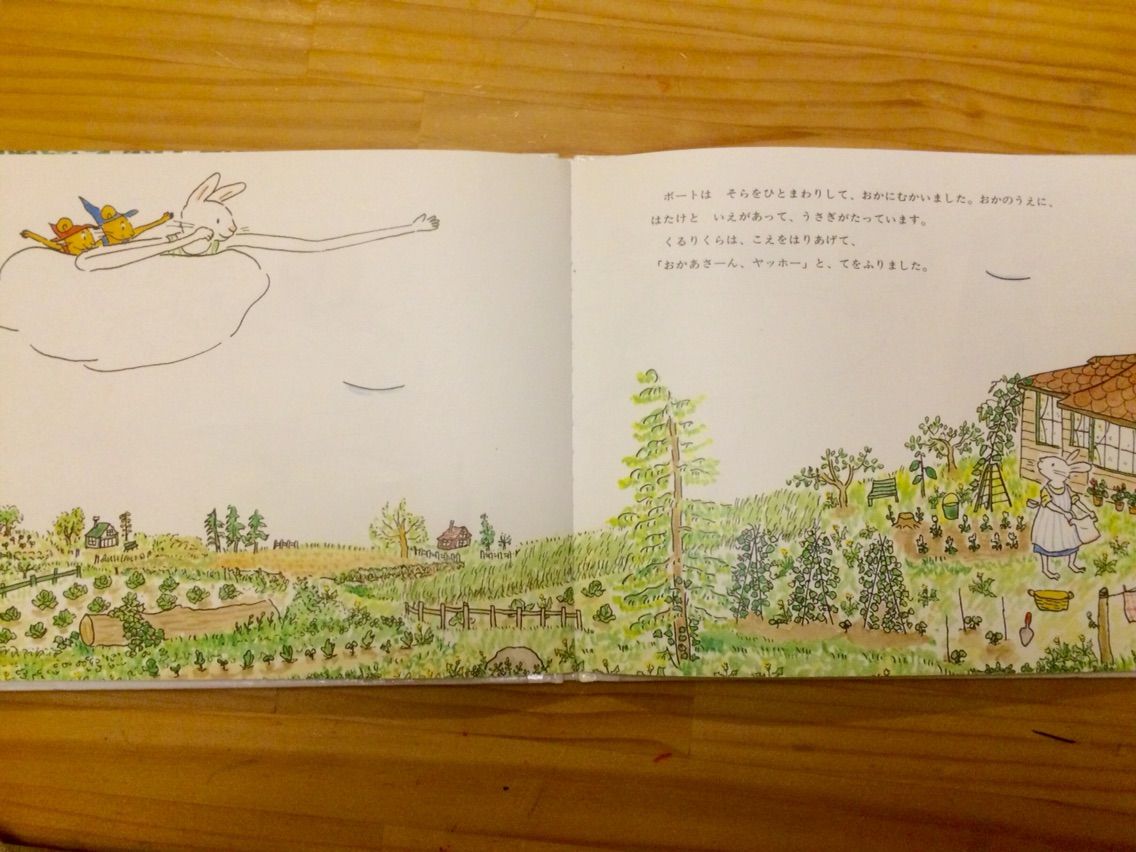 ボートは　そらをひとまわりして、おかにむかいました。おかのうえに、
はたけと　いえがあって、うさぎがたっています。
くるりくらは、こえをはりあげて、
「おかあさーん、ヤッホー」と、てをふりました。